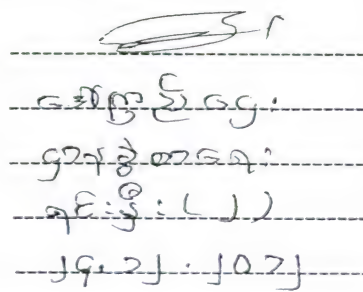 ဒေါ်ကြည်ဌေး
ဌာနခွဲစာရေး
ရင်းနှီး(၂)
၂၄.၁၂.၂၀၁၂